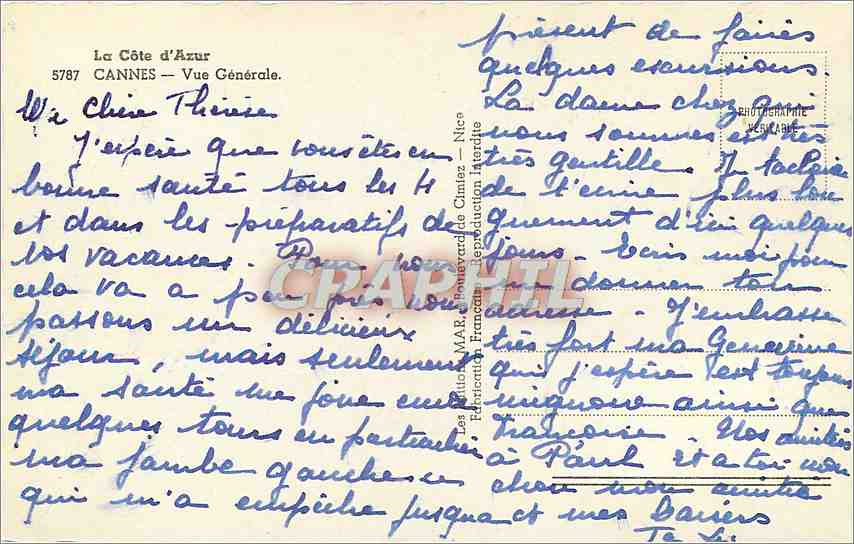 La Côte d'Azur
5787 CANNES — Vue Générale.
Ma Chère Thérèse
J'espère que vous êtes en
bonne santé tous les 4
et dans les préparatifs de
vos vacances. Pour nous
cela va a peu près nous
passons un délicieux
séjour, mais seulement
ma santé me joue
quelques tours en particulier
ma jambe gauche
qui m'a empêche jusqua
présent de faires
quelques excursions.
La dame chez qui
nous sommes est très
très gentille. Je tacherai
de t'ecrire plus lon
guement d'ici quelques
jours. Ecris moi pour
me donner ton
adresse. J'embrasse
très fort ma Geneviève
qui j'espère est toujours
mignonne ainsi que
Françoise. Nos amitiés
à Paul et a toi mon
chou mon amitié
et mes baisers
Ta
Les Editions MAR, Boulevard de Cimiez — Nice
Fabrication Française - Reproduction Interdite
PHOTOGRAPHIE
VÉRITABLE
CPAPHIL